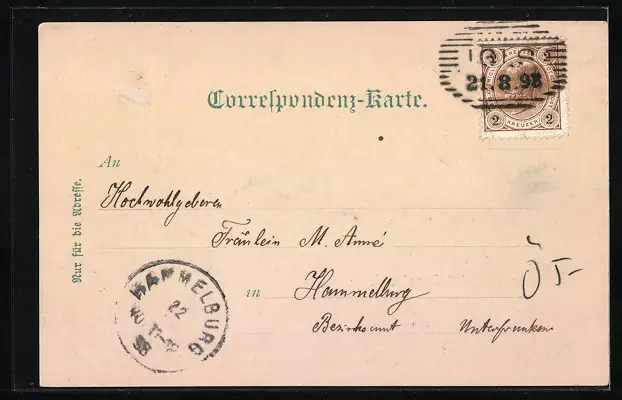 21.8.98
2 2
KREUZER
2 2
Correspondenz-Karte.
An
Nur für die Adresse.
Hochwohlgeboren
Fräulein M. Anné
in Hammelburg
Bezirksamt Unterfranken
HAMMELBURG
22
98